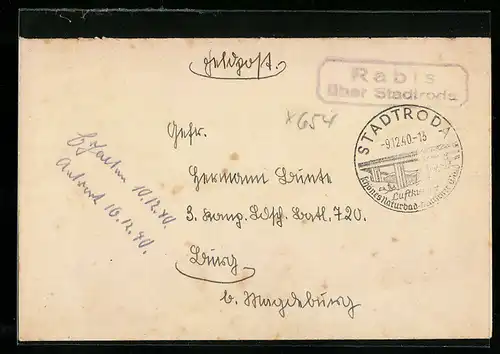 Feldpost.
Rabis
über Stadtroda
x654
STADTRODA
-9.12.40-13
Luftkurort
Gefr.
Hermann Bunte
3. Komp. Ldsch. Batl. 720.
Burg
b. Magdeburg
Erhalten 10.12.40.
Antwort 10.12.40.